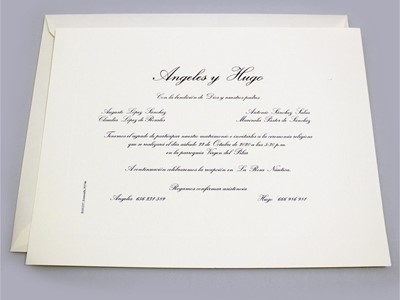 Angeles y Hugo
Con la bendición de Dios y nuestros padres
Augusto López Sánchez
Claudia López de Rosales
Antonio Sánchez Salas
Manuela Pastor de Sánchez
Tenemos el agrado de participar nuestro matrimonio e invitarles a la ceremonia religiosa
que se realizará el día sábado 22 de Octubre de 2020 a las 5:30 p.m.
en la parroquia Virgen del Pilar
A continuación celebraremos la recepción en La Rosa Náutica.
Rogamos confirmar asistencia
Angeles 656 221 589
Hugo 666 986 987